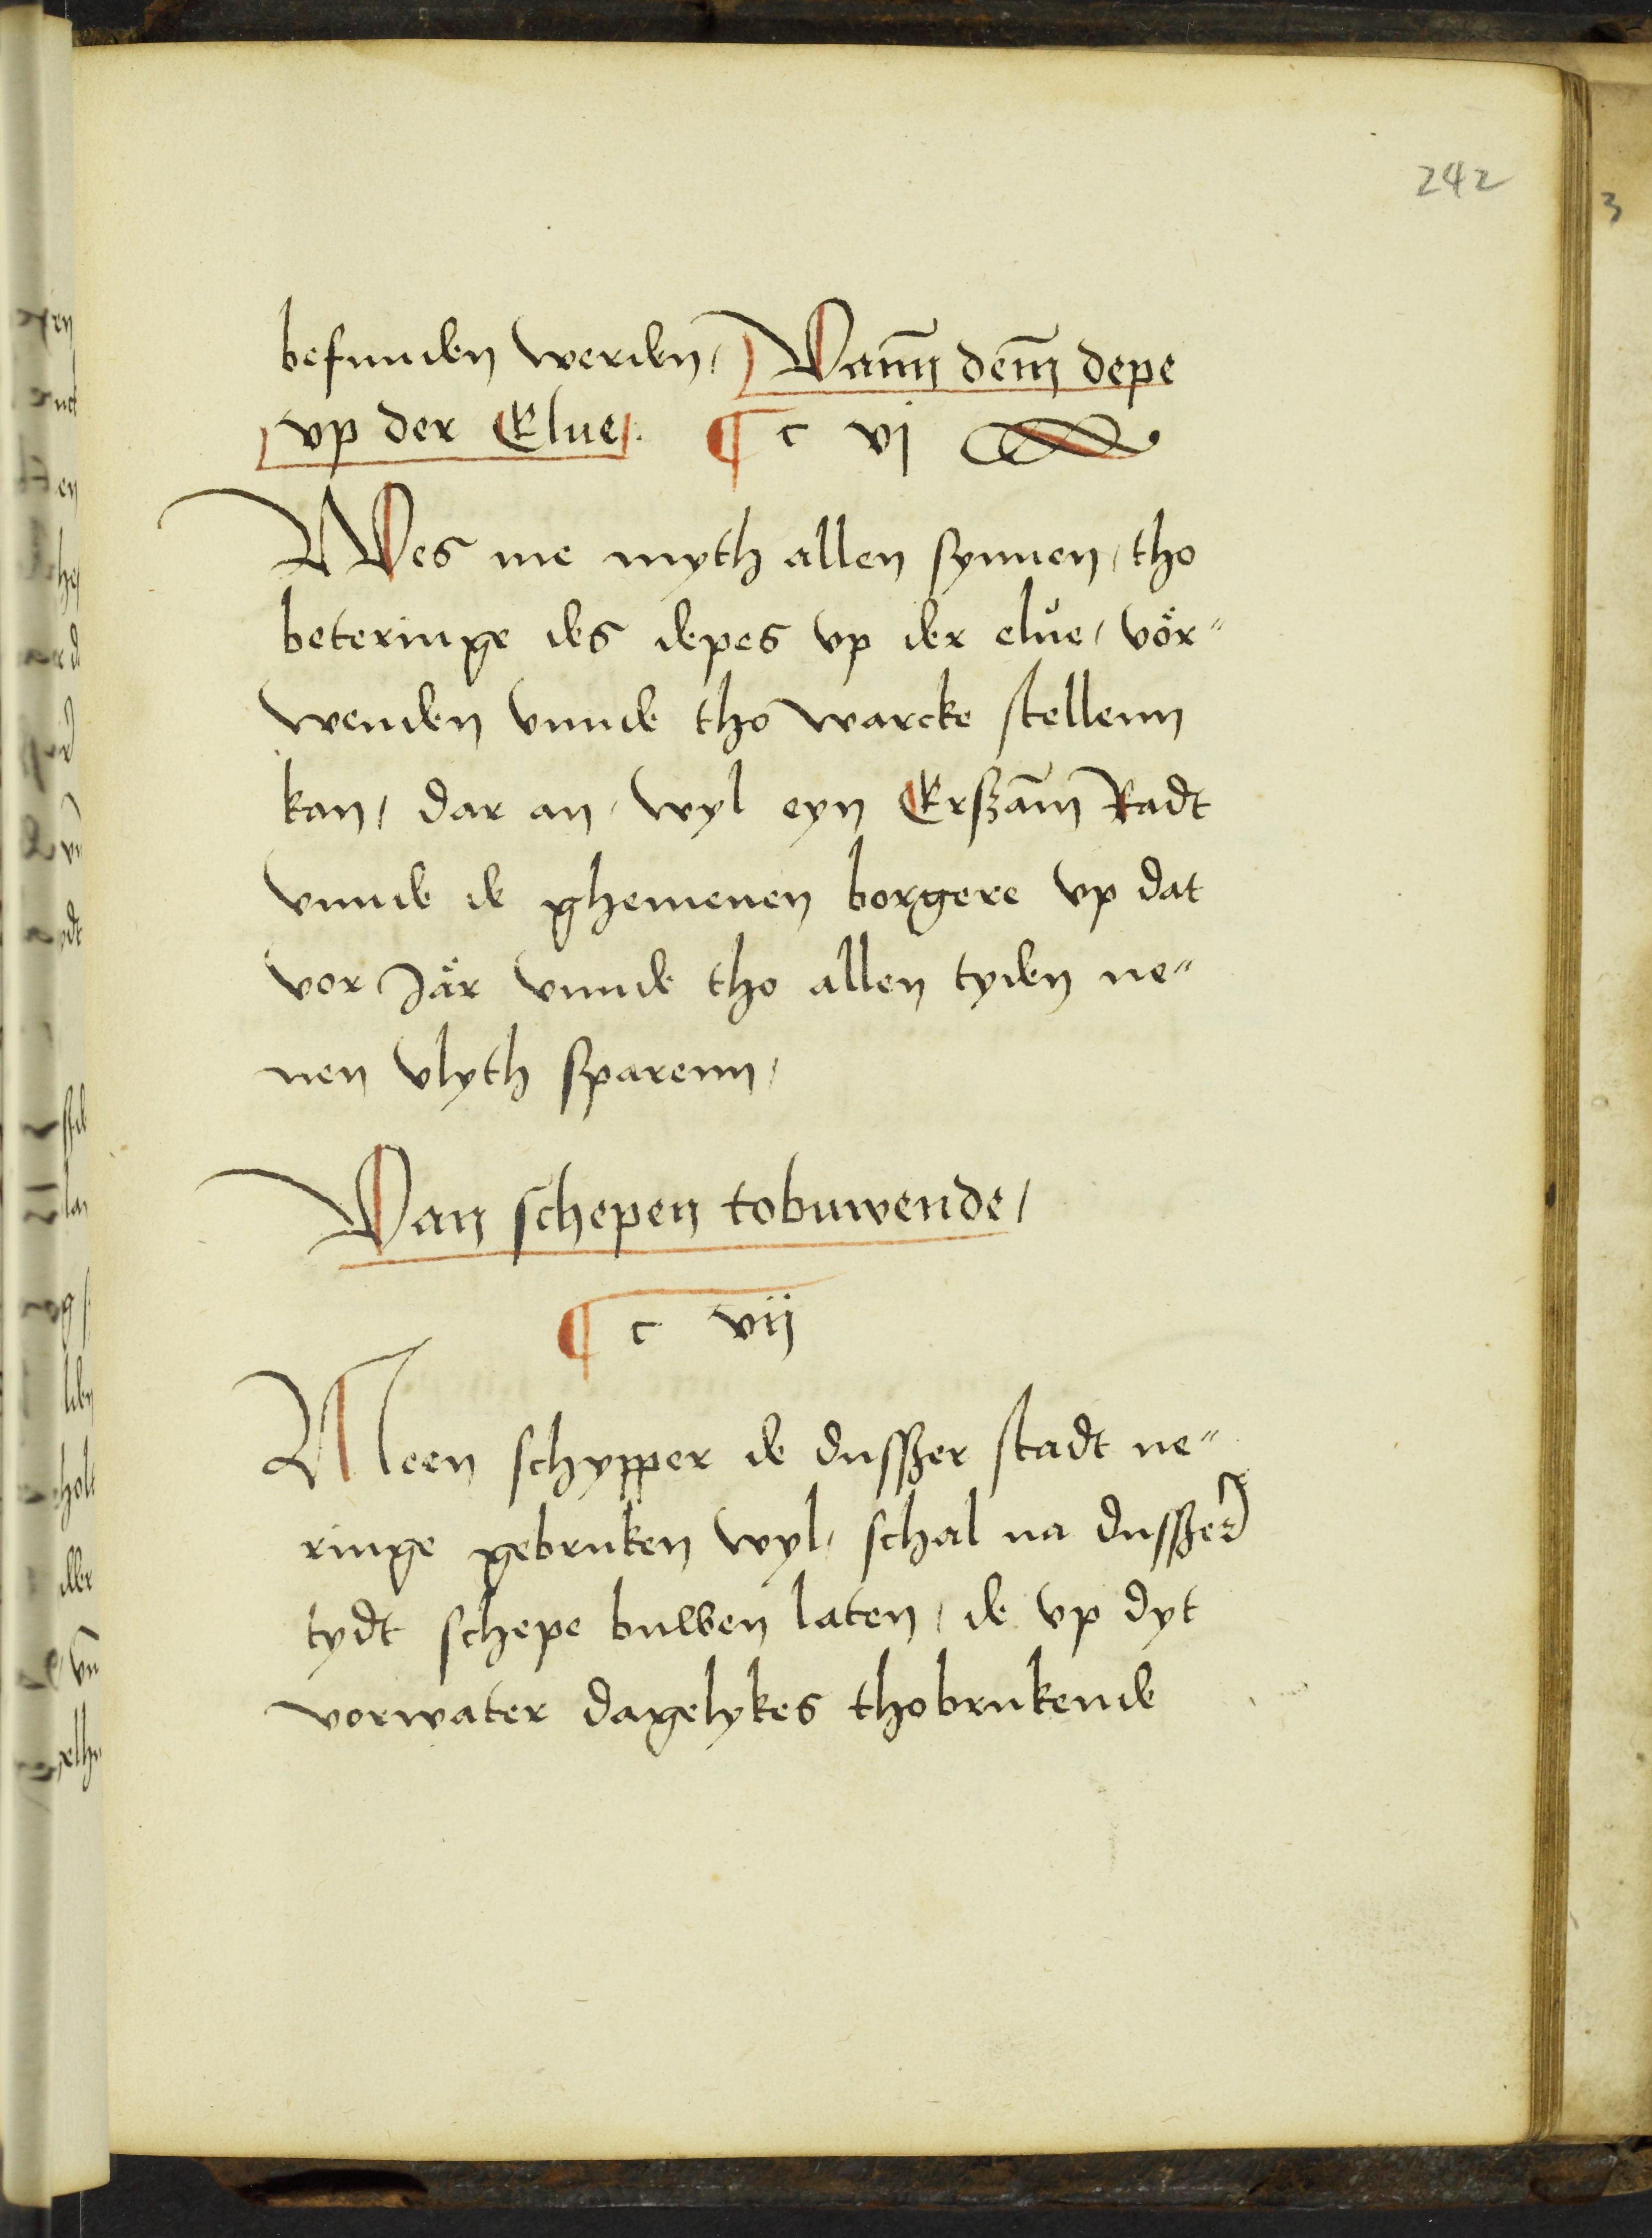 242
3
befunden werden, Vann̄ dem̄ depe
vp der Elue. ¶ c vj
Wes me myth allen synnen, tho
beteringe des depes vp der elue, vör-
wenden vnnde tho warcke stellenn
kan, dar an, wyl eyn Erßam̄ Radt
vnnde de ghemenen borgere vp dat
vor Jar vnnde tho allen tyden ne-
nen vlyth sparenn,
Van schepen tobuwende,
¶ c vij
Neen schypper de dusßer stadt ne-
ringe gebruken wyl, schal na dusßer
tydt schepe buwen laten, de vp dyt
vorwater dagelykes thobrukende